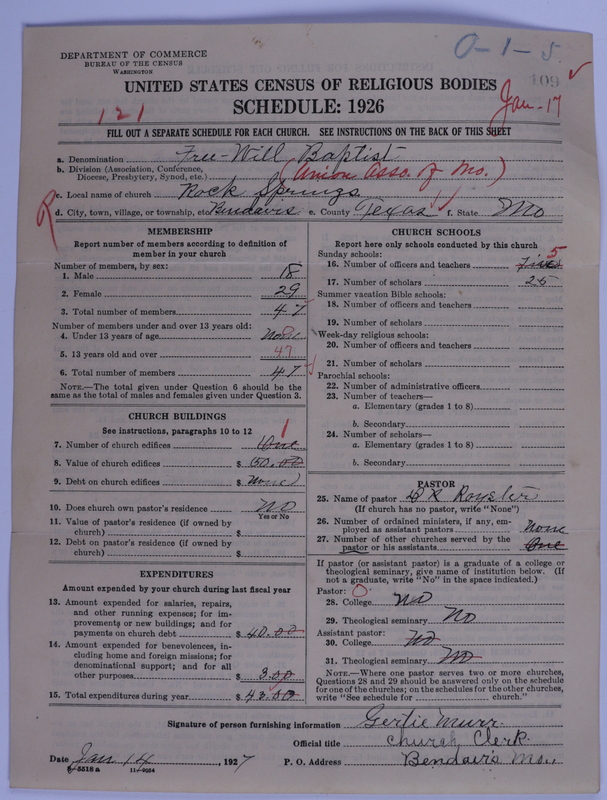 O-1-5
DEPARTMENT OF COMMERCE
BUREAU OF THE CENSUS
WASHINGTON
109
UNITED STATES CENSUS OF RELIGIOUS BODIES
SCHEDULE: 1926
121
Jan-17
FILL OUT A SEPARATE SCHEDULE FOR EACH CHURCH. SEE INSTRUCTIONS ON THE BACK OF THIS SHEET
a. Denomination Free-Will Baptist
b. Division (Association, Conference, Diocese, Presbytery, Synod, etc.) (Union Asso. of Mo.)
R
c. Local name of church Rock Springs
d. City, town, village, or township, etc. Bendavis e. County Texas f. State Mo
MEMBERSHIP
Report number of members according to definition of
member in your church
Number of members, by sex:
1. Male 18
2. Female 29
3. Total number of members 47
Number of members under and over 13 years old:
4. Under 13 years of age None
5. 13 years old and over 47
6. Total number of members 47
NOTE.—The total given under Question 6 should be
same as the total of males and females given under Question 3.
CHURCH BUILDINGS
See instructions, paragraphs 10 to 12
7. Number of church edifices One 1
8. Value of church edifices $
9. Debt on church edifices $ None
10. Does church own pastor's residence No
Yes or No
11. Value of pastor's residence (if owned by
church) $
12. Debt on pastor's residence (if owned by
church) $
EXPENDITURES
Amount expended by church during last fiscal year
13. Amount expended for salaries, repairs,
and other running expenses; for im-
provements or new buildings; and for
payments on church debt $ 40.00
14. Amount expended for benevolences, in-
cluding home and foreign missions; for
denominational support; and for all
other purposes $ 3.00
15. Total expenditures during year $ 43.00
CHURCH SCHOOLS
Report here only schools conducted by this church
Sunday schools:
16. Number of officers and teachers 5
17. Number of scholars 25
Summer vacation Bible schools:
18. Number of officers and teachers
19. Number of scholars
Week-day religious schools:
20. Number of officers and teachers
21. Number of scholars
Parochial schools:
22. Number of administrative officers
23. Number of teachers—
a. Elementary (grades 1 to 8)
b. Secondary
24. Number of scholars—
a. Elementary (grades 1 to 8)
b. Secondary
PASTOR
25. Name of pastor Royster
(If church has no pastor, write "None")
26. Number of ordained ministers, if any, em-
ployed as assistant pastors None
27. Number of other churches served by the
pastor or his assistants One
If pastor (or assistant pastor) is a graduate of a college or
theological seminary, give name of institution below. (If
not a graduate, write "No" in the space indicated.)
Pastor: O
28. College No
29. Theological seminary No
Assistant pastor:
30. College No
31. Theological seminary No
NOTE.—Where one pastor serves two or more churches,
Questions 28 and 29 should be answered only on the schedule
for one of the churches; on the schedules for the other churches,
write "See schedule for church."
Signature of person furnishing information Gertie Murr
Official title Church Clerk
Date Jan 14, 1927 P. O. Address Bendavis Mo.
8-5518 a